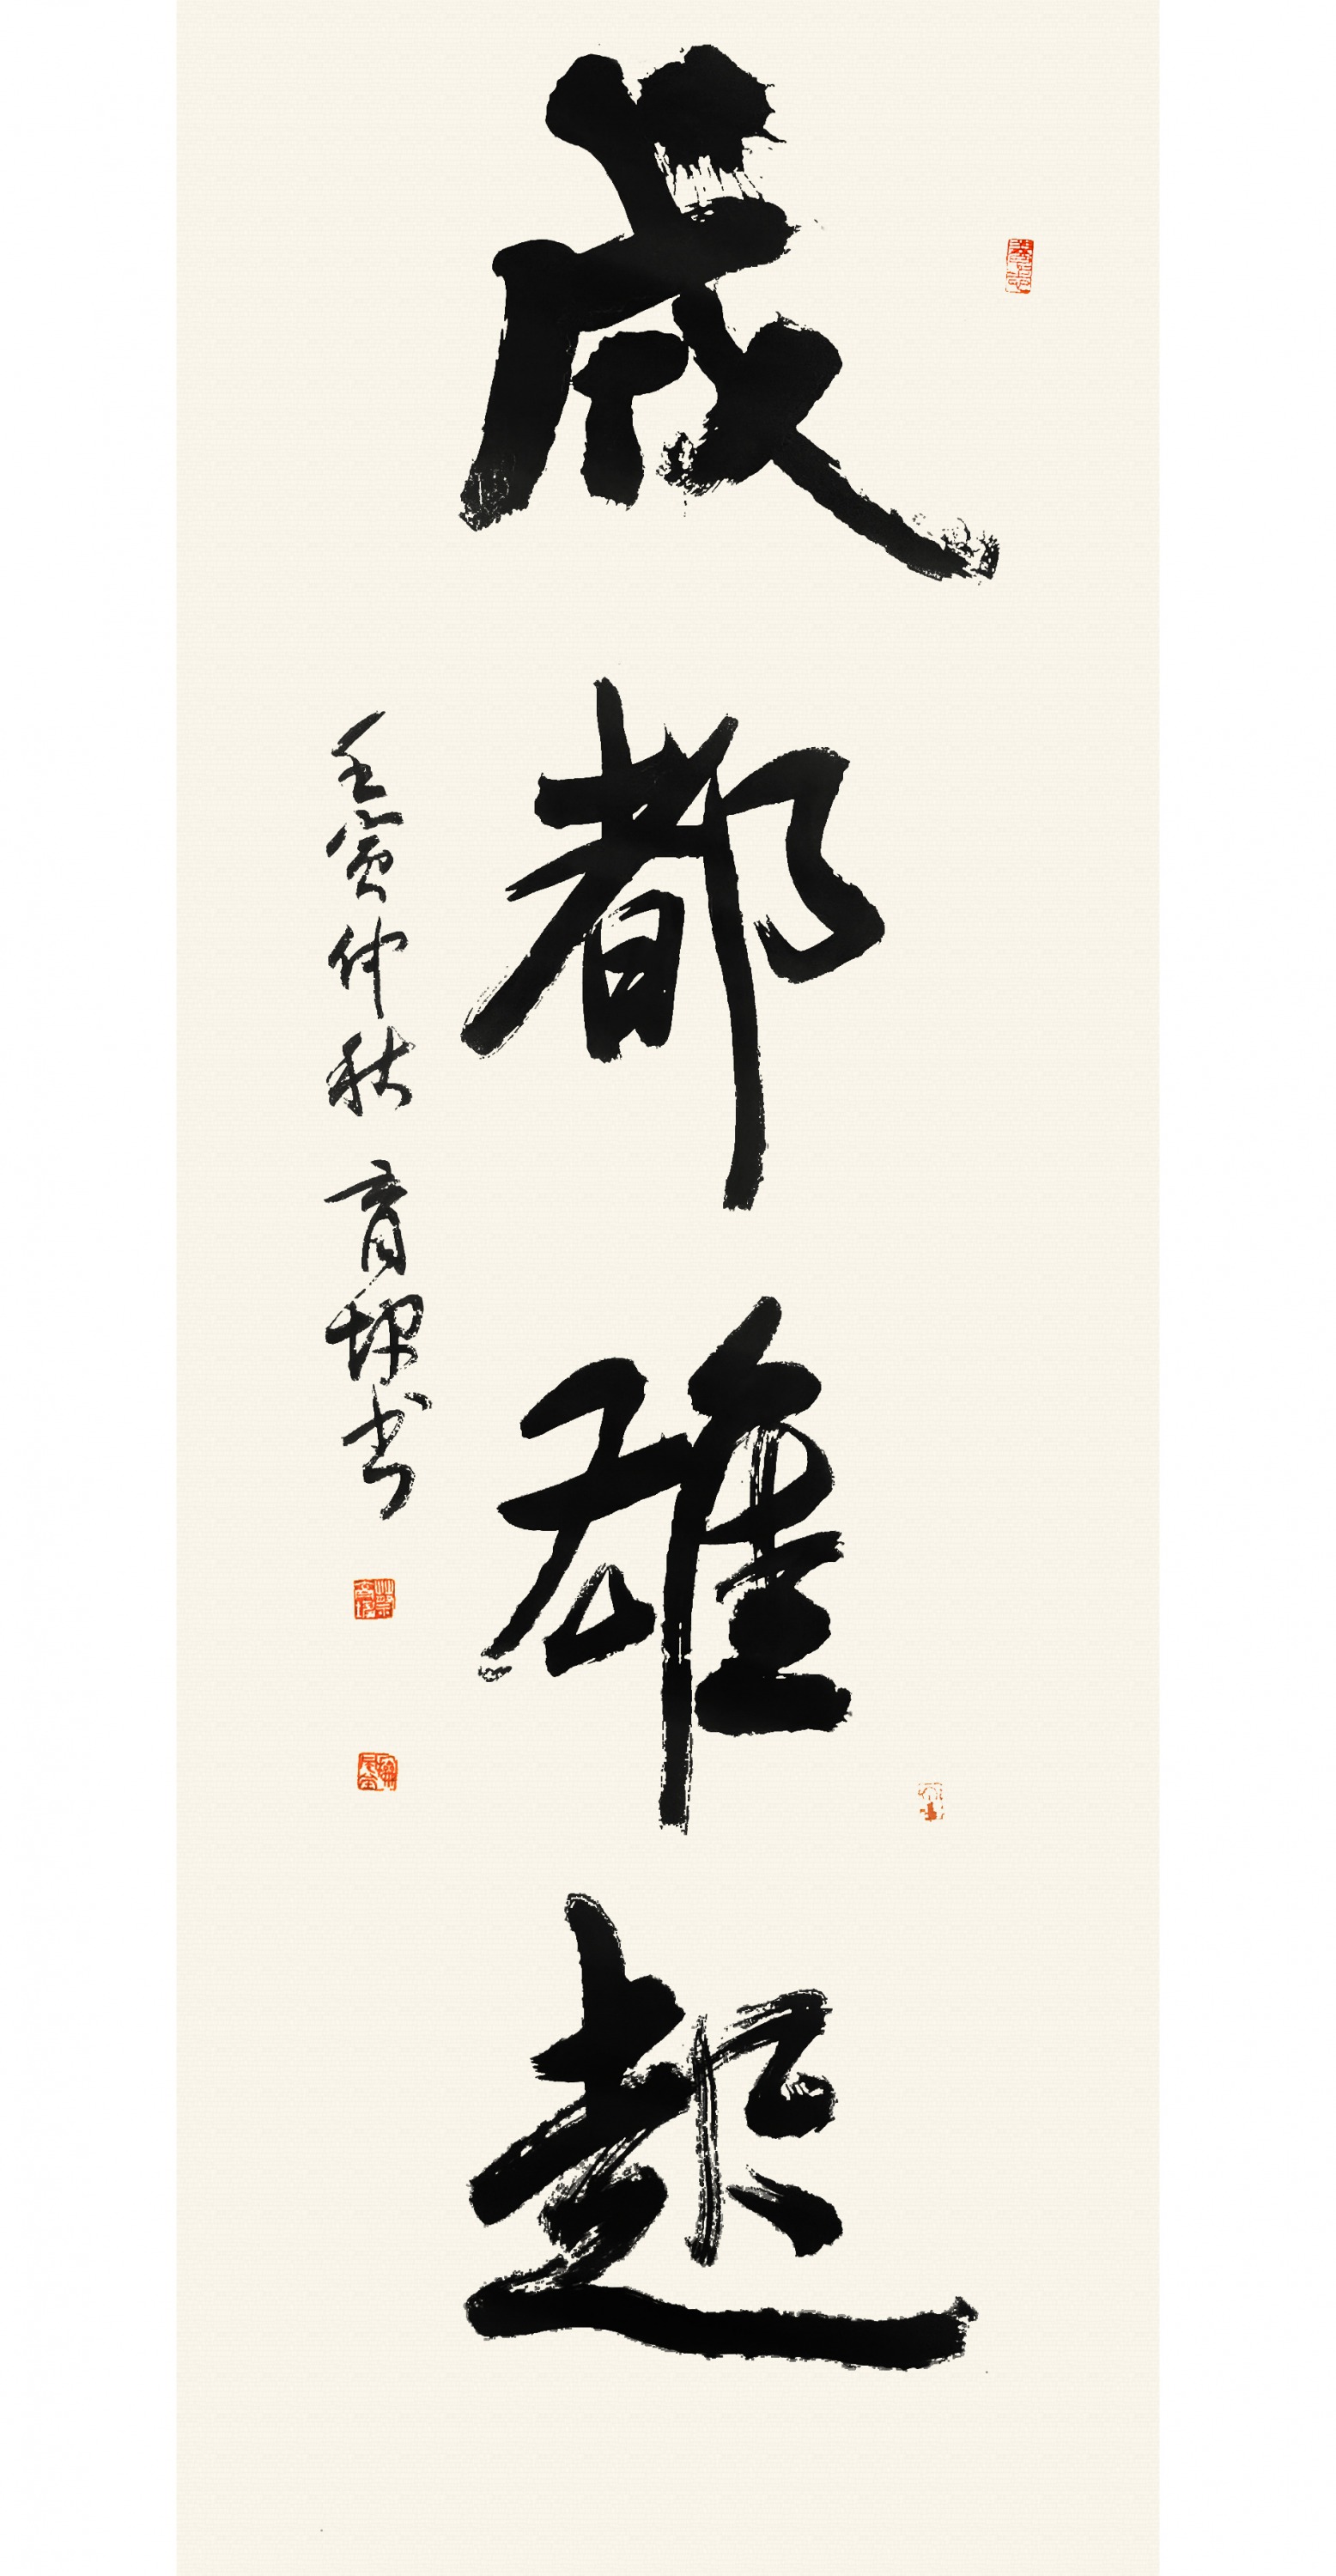 成都雄起
壬寅仲秋 育 书